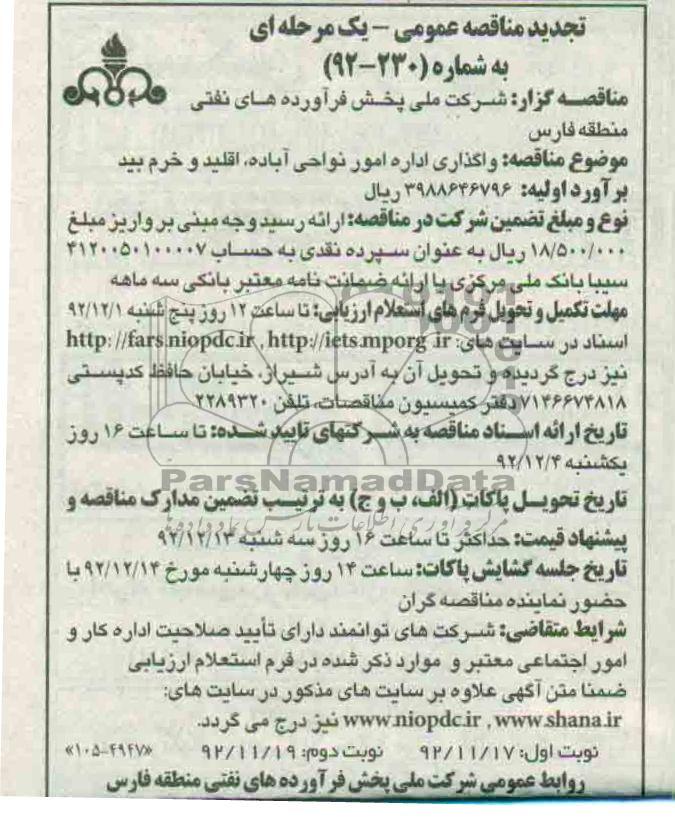 تجدید مناقصه عمومی - یک مرحله ای
به شماره (۲۳۰-۹۲)
مناقصه گزار: شرکت ملی پخش فرآورده های نفتی
منطقه فارس
موضوع مناقصه: واگذاری اداره امور نواحی آباده، اقلید و خرم بید
برآورد اولیه: ۳۹۸۸۶۴۶۷۹۶ ریال
نوع و مبلغ تضمین شرکت در مناقصه: ارائه رسید وجه مبنی بر واریز مبلغ
۱۸/۵۰۰/۰۰۰ ریال به عنوان سپرده نقدی به حساب ۴۱۲۰۰۵۰۱۰۰۰۰۷
سیبا بانک ملی مرکزی یا ارائه ضمانت نامه معتبر بانکی سه ماهه
مهلت تکمیل و تحویل فرم های استعلام ارزیابی: تا ساعت ۱۲ روز پنج شنبه ۹۲/۱۲/۱
اسناد در سایت های: http://fars.niopdc.ir , http://iets.mporg.ir
نیز درج گردیده و تحویل آن به آدرس شیراز، خیابان حافظ کدپستی
۷۱۴۶۶۷۴۸۱۸ دفتر کمیسیون مناقصات، تلفن ۲۲۸۹۳۲۰
تاریخ ارائه اسناد مناقصه به شرکتهای تایید شده: تا ساعت ۱۶ روز
یکشنبه ۹۲/۱۲/۴
ParsNamadData
تاریخ تحویل پاکات (الف، ب و ج) به ترتیب تضمین مدارک مناقصه و
پیشنهاد قیمت: حداکثر تا ساعت ۱۶ روز سه شنبه ۹۲/۱۲/۱۳
تاریخ جلسه گشایش پاکات: ساعت ۱۴ روز چهارشنبه مورخ ۹۲/۱۲/۱۴ با
حضور نماینده مناقصه گران
شرایط متقاضی: شرکت های توانمند دارای تأیید صلاحیت اداره کار و
امور اجتماعی معتبر و موارد ذکر شده در فرم استعلام ارزیابی
ضمنا متن آگهی علاوه بر سایت های مذکور در سایت های:
www.niopdc.ir , www.shana.ir نیز درج می گردد.
نوبت اول: ۹۲/۱۱/۱۷ نوبت دوم: ۹۲/۱۱/۱۹ «۱۰۵-۴۹۴۷»
روابط عمومی شرکت ملی پخش فرآورده های نفتی منطقه فارس